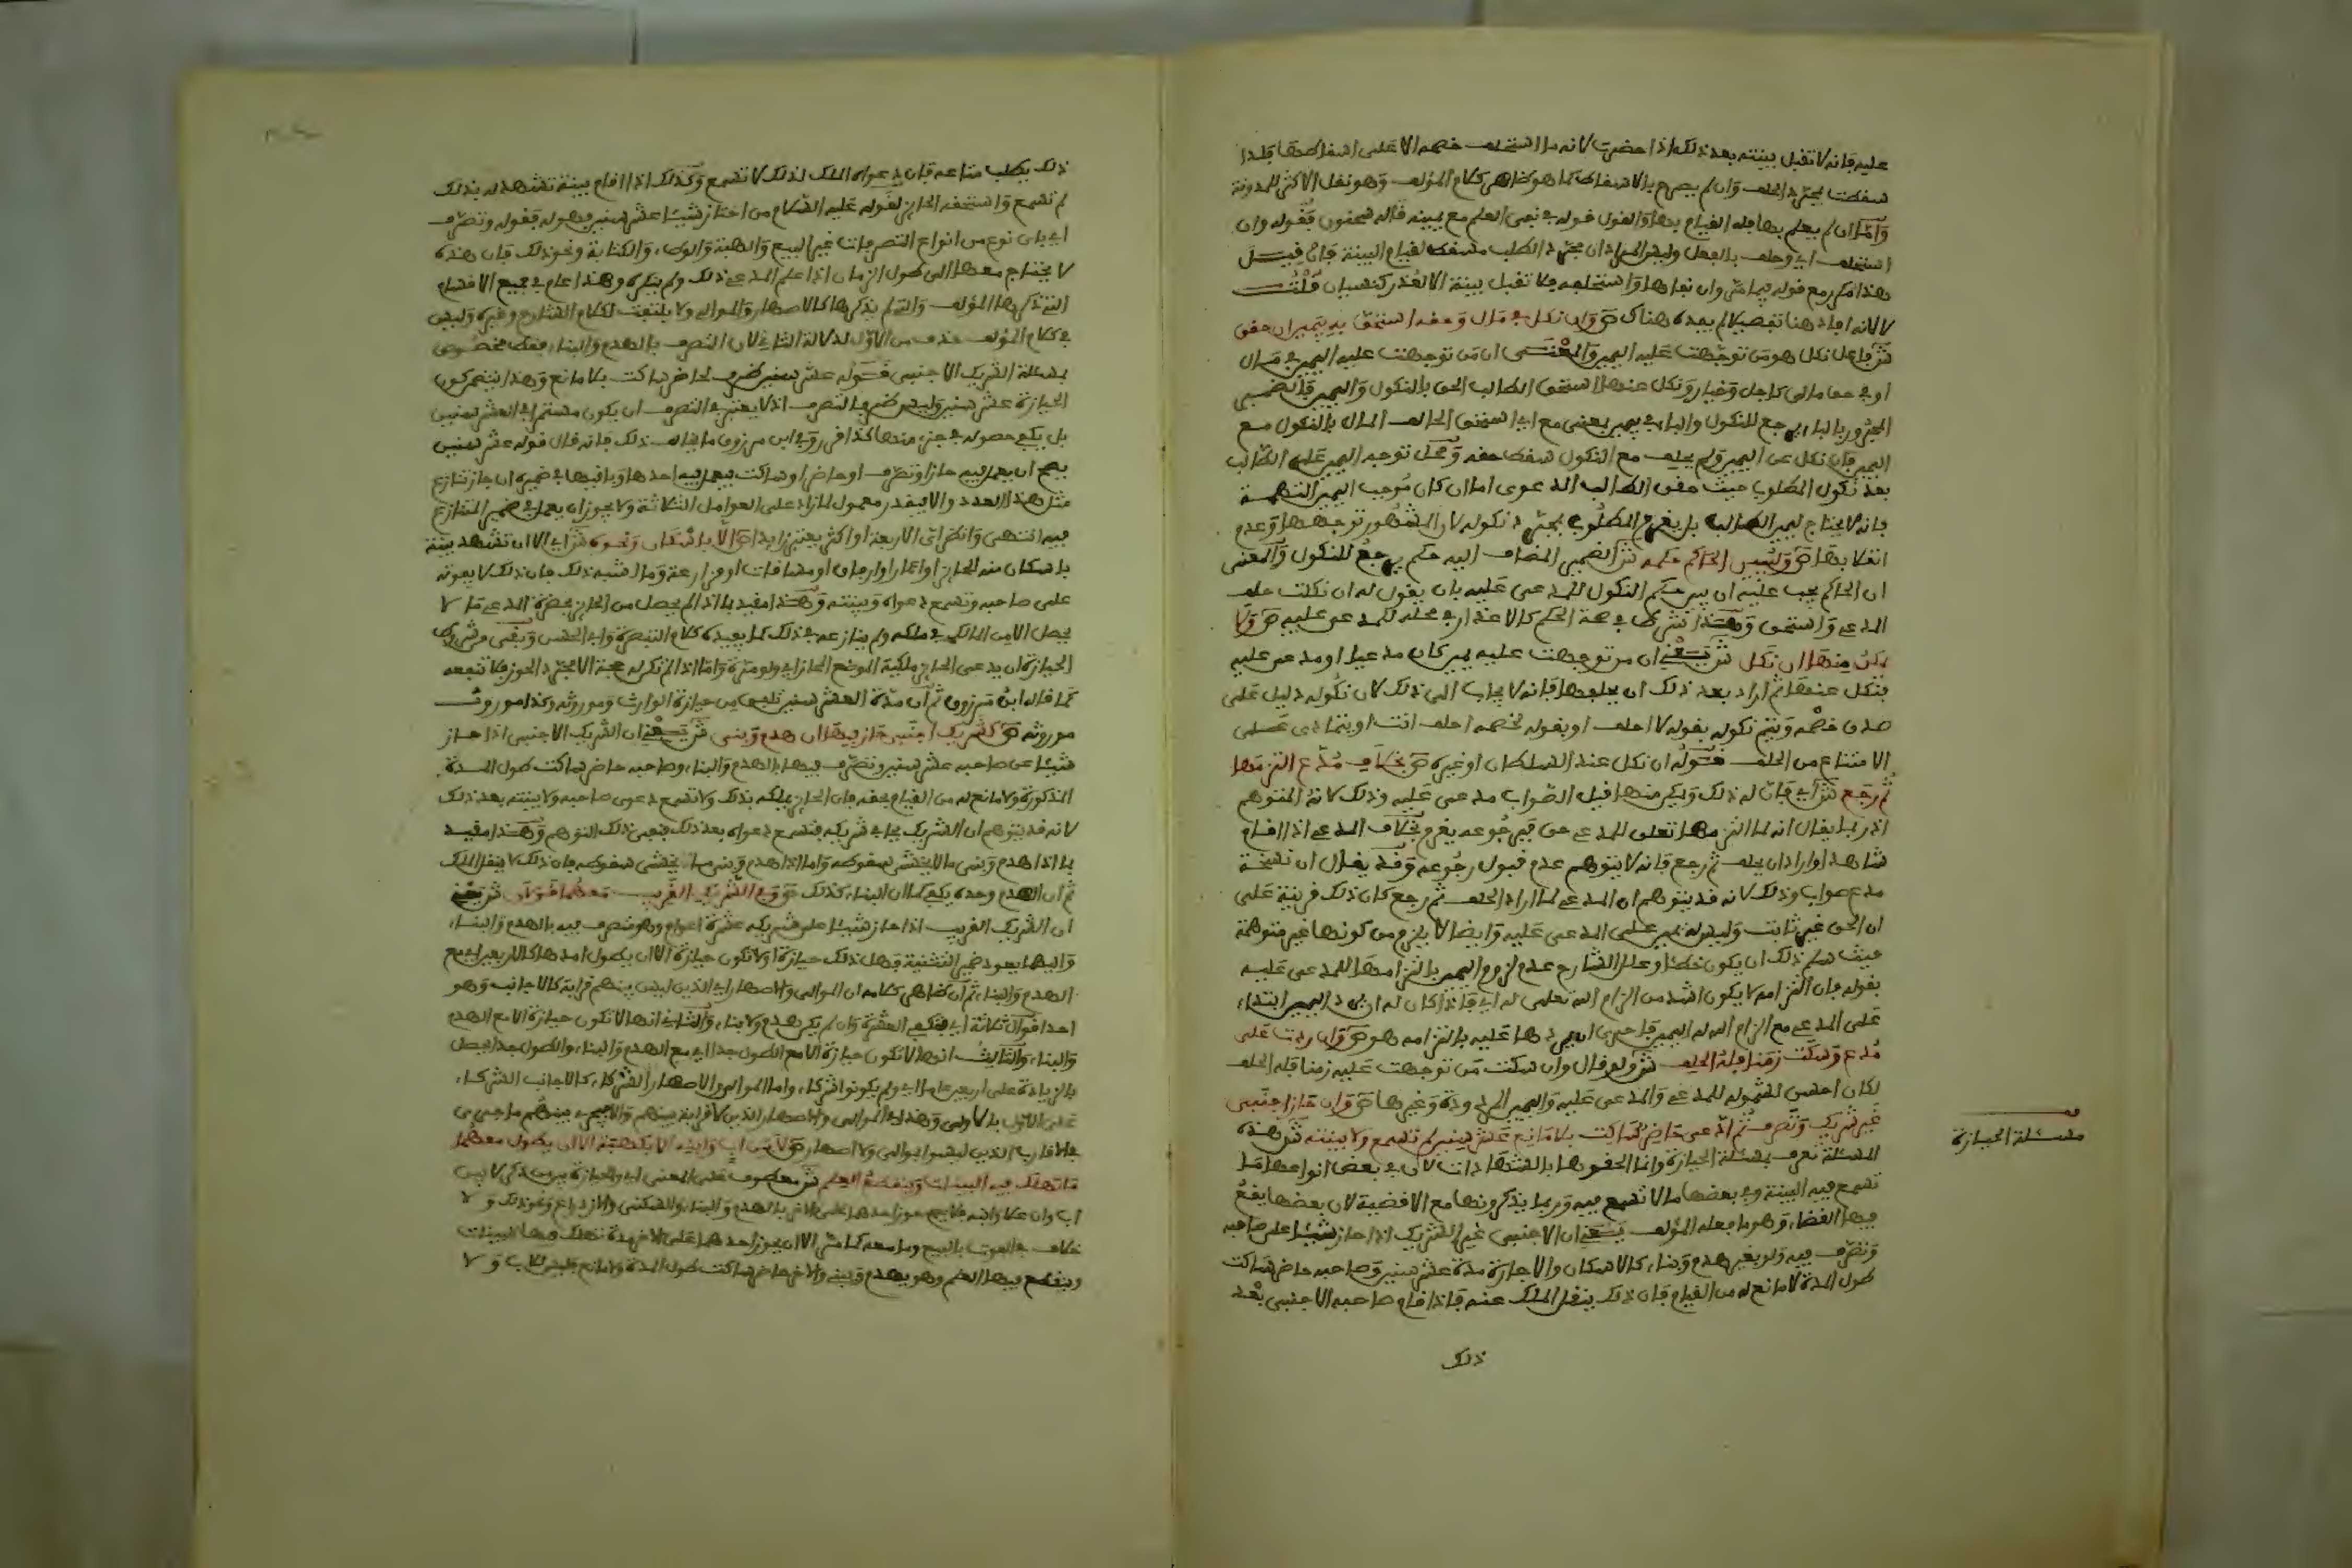 عليه فإنه لا تقبل بينته بعد ذلك إذا حضرت لأنه ما استحلف خصمه الا على اسقاطها فلذا
سقطت بمجرد الحلف وان لم يصرح بالاسقاط كما هو ظاهر كلام المؤلف وهو نقل الاكثر للمدونة
وامّا ان لم يعلم بها فله القيام بها والقول قوله في نفي العلم مع يمينه قاله سحنون فقوله وان
استحلف اي وحلف بالفعل وليس المراد ان مجرد الطلب مسقط لقيام البينة فان قيل
هذا مكرر مع قوله فيما مرّ وان نفاها واستحلفه فلا تقبل بينة الا لعذر كنسيان قلت
لا لانه افاد هنا تفصيلا لم يفده هناك ص وان نكل في مال وحقه استحق به بيمين ان حقق
ش فاعل نكل هو من توجهت عليه اليمين والمعنى ان من توجهت عليه اليمين في مال
او في حق مالي كاجل وخيار ونكل عنها استحق الطالب الحق بالنكول واليمين فالضمير
المجرور بالباء يرجع للنكول والباء في بيمين بمعنى مع اي استحق الحالف المال بالنكول مع
اليمين فان نكل عن اليمين ولم يحلف مع النكول سقط حقه ومحل توجه اليمين على الطالب
بعد نكول المطلوب حيث حقق الطالب الدعوى اما ان كان موجب اليمين التهمة
فانه لا يحتاج ليمين الطالب بل يغرم المطلوب بمجرد نكوله لان المشهور توجهها وعدم
انقلابها ص وليبين الحاكم حكمه ش الضمير المضاف اليه حكم يرجع للنكول والمعنى
ان الحاكم يجب عليه ان يبين حكم النكول للمدعى عليه بان يقول له ان نكلت حلف
المدعي واستحق وهذا شرط في صحة الحكم كالاعذار في محله للمدعى عليه ص ولا
يمكن منها ان نكل ش يعني ان من توجهت عليه يمين كان مدعيا او مدعى عليه
فنكل عنها ثم اراد بعد ذلك ان يحلفها فانه لا يجاب الى ذلك لان نكوله دليل على
صدق خصمه ويتم نكوله بقوله لا احلف او بقوله لخصمه احلف انت او بتماديه على
الامتناع من الحلف فقوله ان نكل عند السلطان او غيره ص بخلاف مدع التزمها
ثم رجع ش اي فان له ذلك ويمكن منها قيل الصواب مدعى عليه وذلك لانه المتوهم
اذ ربما يقال انه لما التزمها تعلق للمدعي حق فبرجوعه يغرم بخلاف المدعي اذا اقام
شاهدا واراد ان يحلف ثم رجع فانه لا يتوهم عدم قبول رجوعه وقد يقال ان نسخة
مدع صواب وذلك لانه قد يتوهم ان المدعي لما اراد الحلف ثم رجع كان ذلك قرينة على
ان الحق غير ثابت وليس له يمين على المدعى عليه وايضا لا يلزم من كونها غير متوهمة
حيث سلم ذلك ان يكون خطئا وعلل الشارح عدم لزوم اليمين بالتزامها للمدعى عليه
بقوله فان التزامه لا يكون اشد من الزام الله تعالى له اي فاذا كان له ان يرد اليمين ابتداء
على المدعي مع الزام الله له اليمين فاحرى ان يردها عليه بالتزامه هو ص وان ردت على
مدع وسكت زمنا فله الحلف ش ولو قال وان سكت من توجهت عليه زمنا فله الحلف
لكان احسن لشموله للمدعي والمدعى عليه واليمين المردودة وغيرها ص وان حاز اجنبي
غير شريك وتصرف ثم ادعى حاضر ساكت بلا مانع عشر سنين لم تسمع ولا بينته ش هذه
المسئلة تعرف بمسئلة الحيازة وانما الحقوها بالشهادات لان في بعض انواعها ما
تسمع فيه البينة وفي بعضها ما لا تسمع فيه وربما يذكرونها مع الاقضية لان بعضها يقع
فيها القضاء وهو ما فعله المؤلف يعني ان الاجنبي غير الشريك اذا حاز شيئا على صاحبه
وتصرف فيه ولو بغير هدم وبناء كالاسكان والاجارة مدة عشر سنين وصاحبه حاضر ساكت
طول المدة لا مانع له من القيام فان ذلك ينقل الملك عنه فاذا قام صاحبه الاجنبي بعد
ذلك
مسئلة الحيازة
ذلك يطلب متاعه فان دعواه الملك لذلك لا تسمع وكذلك اذا اقام بينة تشهد له بذلك
لم تسمع واستحقه الحائز لقوله عليه السلام من احتاز شيئا عشر سنين فهو له فقوله وتصرف
اي باي نوع من انواع التصرفات غير البيع والهبة والوطء والكتابة ونحو ذلك فان هذه
لا يحتاج معها الى طول الزمان اذا علم المدعي ذلك ولم ينكره وهذا عام في جميع الاقسام
التي ذكرها المؤلف والتي لم يذكرها كالاصهار والموالي ولا يلتفت لكلام الشارح وغيره وليس
في كلام المؤلف حذف من الاول لدلالة الثاني لان التصرف بالهدم والبناء فقط مخصوص
بمسئلة الشريك الاجنبي فقوله عشر سنين ظرف لحاضر ساكت بلا مانع وهذا يتضمن كون
الحيازة عشر سنين وليس ظرفا لتصرف اذ لا يعتبر في التصرف ان يكون مستمرا في العشر سنين
بل يكفي حصوله في جزء منها كذا قرر وفي ابن مرزوق ما يخالف ذلك فانه قال قوله عشر سنين
يصح ان يعمل فيه حاز او تصرف او حاضر او ساكت فيعمل فيه احدها وباقيها في ضميره ان جاز تنازع
مثل هذا العدد والا فيقدر معمول لما زاد على العوامل الثلاثة ولا يجوز ان يعمل في ضمير المتنازع
فيه انتهى وانظر اتى الاربعة او اكثر يعتبر زايدا ص الا باسكان ونحوه ش اي الا ان تشهد بينة
باسكان منه للحائز او اعمار او ارفاق او مساقات او مزارعة وما اشبه ذلك فان ذلك لا يفوته
على صاحبه وتسمع دعواه وبينته وهذا مقيد بما اذا لم يحصل من الحائز بحضرة المدعي ما لا
يحصل الا من المالك في ملكه ولم ينازعه في ذلك كما يفيده كلام التبصرة وابي الحسن وبقي من شرط
الحيازة ان يدعي الحائز ملكية الموضع المحاز اي ولو مرة واما اذا لم تكن له حجة الا مجرد الحوز فلا تنفعه
كما قاله ابن مرزوق ثم ان مدة العشر سنين تلفق من حيازة الوارث وموروثه وكذا موروث
موروثه ص كشريك اجنبي حاز فيها ان هدم وبنى ش يعني ان الشريك الاجنبي اذا حاز
شيئا عن صاحبه عشر سنين وتصرف فيها بالهدم والبناء وصاحبه حاضر ساكت طول المدة
المذكورة ولا مانع له من القيام بحقه فان الحائز يملكه بذلك ولا تسمع دعوى صاحبه ولا بينته بعد ذلك
لانه قد يتوهم ان الشريك يحابي شريكه فتسمع دعواه بعد ذلك فنفى ذلك التوهم وهذا مقيد
بما اذا هدم وبنى ما لا يخشى سقوطه واما اذا هدم وبنى ما يخشى سقوطه فان ذلك لا ينقل الملك
ثم ان الهدم وحده يكفي كما ان البناء كذلك ص وفي الشريك القريب معهما قولان ش يعني
ان الشريك القريب اذا حاز شيئا على شريكه عشرة اعوام وهو متصرف فيه بالهدم والبناء
واليهما يعود ضمير التثنية فهل ذلك حيازة او لا تكون حيازة الا ان يطول امدها كالاربعين مع
الهدم والبناء ثم ان ظاهر كلامه ان الموالي والاصهار اي الذين ليس بينهم قرابة كالاجانب وهو
احد اقوال ثلاثة اي فتكفي العشرة وان لم يكن هدم ولا بناء والثاني انها لا تكون حيازة الا مع الهدم
والبناء والثالث انها لا تكون حيازة الا مع الطول جدا اي مع الهدم والبناء والطول جدا يحصل
بالزيادة على اربعين عاما اي ولم يكونوا شركاء واما الموالي والاصهار الشركاء كالاجانب الشركاء
على الاول بالاولى وهذا في الموالي والاصهار الذين لا قرابة بينهم والا فيجري بينهم ما جرى في
الاقارب الذين ليسوا بموالي ولا اصهار ص لا بين اب وابنه الا بكهبة الا ان يطول معهما
ما تهلك فيه البينات وينقطع العلم ش معطوف على المعنى اي والحيازة بين من ذكر لا بين
اب وان علا وابنه فلا يصح حوز احدهما على الاخر بالهدم والبناء والسكنى والازدراع ونحو ذلك ولا
خلاف في الفوت بالبيع وما معه كما مر الا ان يحوز احدهما على الاخر مدة تهلك فيها البينات
وينقطع فيها العلم وهو يهدم ويبني والاخر حاضر ساكت طول المدة ولا مانع فليس للاب ولا